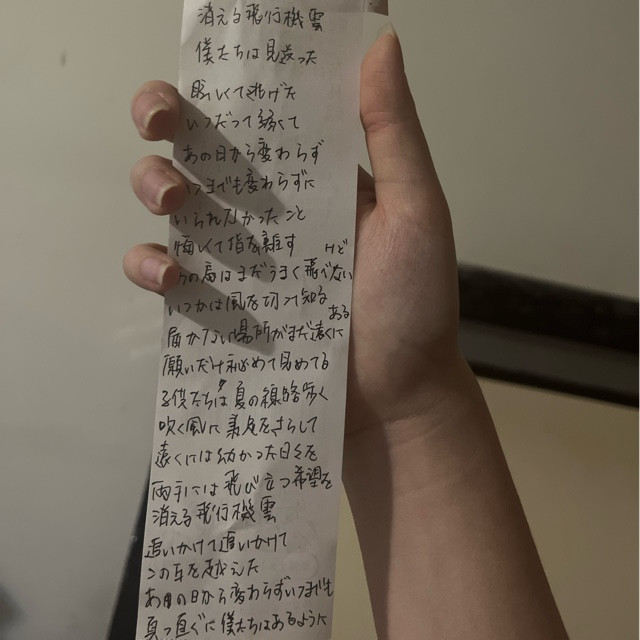 消える飛行機雲
僕たちは見送った
眩しくて逃げた
いつだって弱くて
あの日から変わらず
いつまでも変わらずに
いられなかったこと
悔しくて指を離す
けど
あの鳥はまだうまく飛べない
いつかは風を切って知る
ある
届かない場所がまだ遠くに
願いだけ秘めて見めてる
子供たちは夏の線路歩く
吹く風に素足をさらして
遠くには幼かった日々を
両手には飛び立つ希望を
消える飛行機雲
追いかけて追いかけて
この丘を越えた
あの日から変わらずいつまでも
真っ直ぐに僕たちはあるように